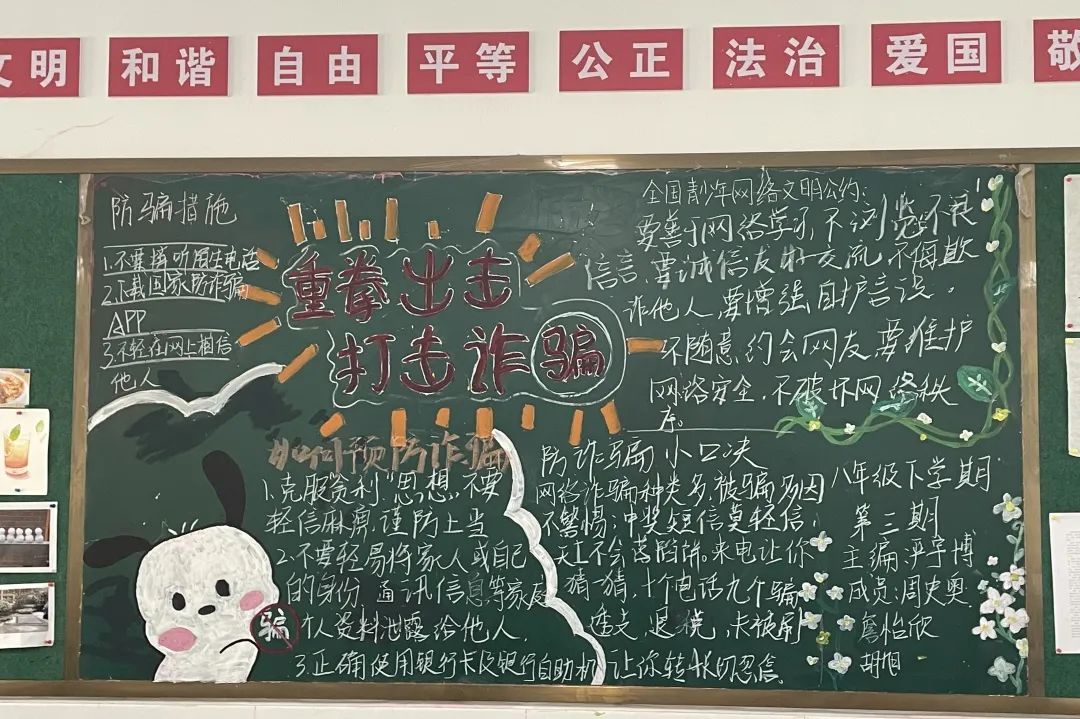 文明 和谐 自由 平等 公正 法治 爱国 敬
防骗措施
1.不要接听陌生电话
2.下载国家防诈骗
APP
3.不轻在网上相信
他人
重拳出击
打击诈骗
全国青少年网络文明公约:
要善于网络学习,不浏览不良
信言,要诚信友好交流,不侮欺
诈他人,要增强自护言识。
不随意约会网友要维护
网络安全,不破坏网络秩
序。
如何预防诈骗
1.克服贪利"思想,不要
轻信麻痹,谨防上当
2.不要轻易将家人或自己
的身份,通讯信息等家庭
个人资料泄露给他人,
3.正确使用银行卡及银行自助机
骗
防诈骗小口决
网络诈骗种类多,被骗多因
不警惕;中奖短信莫轻信;
天上不会落陷饼.来电让你
猜一猜,十个电话九个骗
透支,退税,卡被刷
让你转帐切忍信.
八年级下学期
第三期
主编:严宇博
成员:周史奥
詹怡欣
胡旭